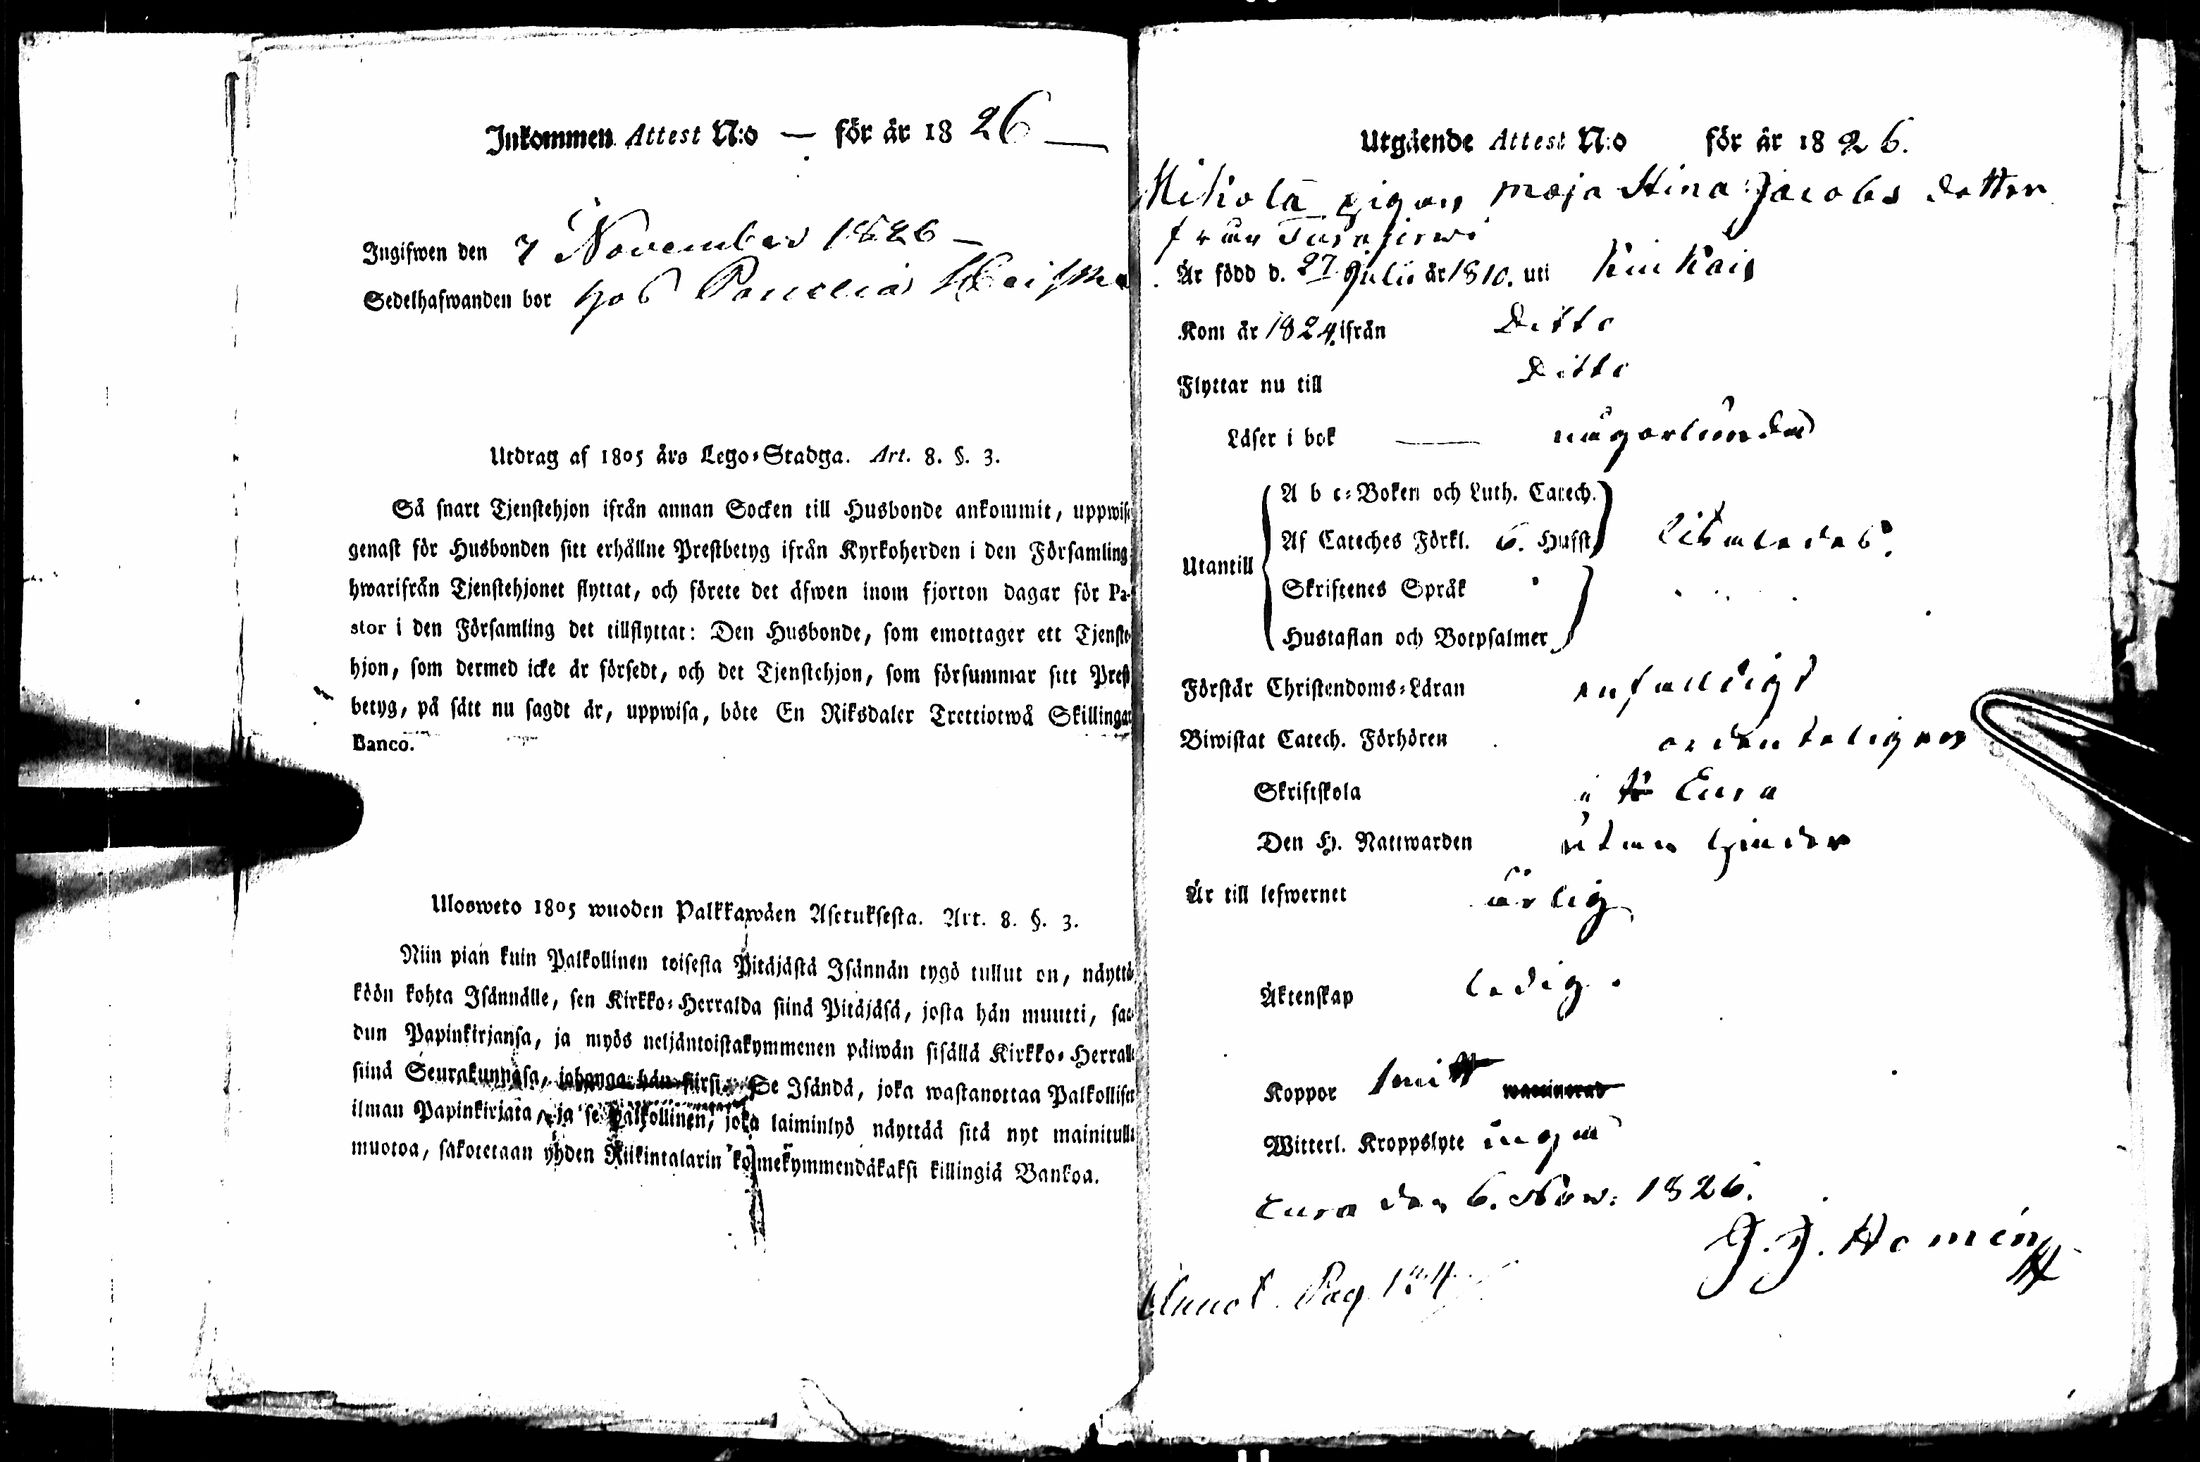 Inkommen Attest N:o — för år 1826 —
Ingifwen den 7 November 1826 —
Sedelhafwanden bor hos Panelia
Utdrag af 1805 års Lego-Stadga. Art. 8. §. 3.
Så snart Tjenstehjon ifrån annan Socken till Husbonde ankommit, uppwise
genast för Husbonden sitt erhållne Prestbetyg ifrån Kyrkoherden i den Församling
hwarifrån Tjenstehjonet flyttat, och förete det äfwen inom fjorton dagar för Pa-
stor i den Församling det tillflyttat: Den Husbonde, som emottager ett Tjenste-
hjon, som dermed icke är försedt, och det Tjenstehjon, som försummar sitt Prest-
betyg, på sätt nu sagdt är, uppwisa, böte En Riksdaler Trettiotwå Skillingar
Banco.
Ulosweto 1805 wuoden Palkkawäen Asetuksesta. Art. 8. §. 3.
Niin pian kuin Palkollinen toisesta Pitäjästä Isännän tygö tullut on, näyttä-
köön kohta Isännälle, sen Kirkko-Herralda siinä Pitäjäsä, josta hän muutti, saa-
dun Papinkirjansa, ja myös neljäntoistakymmenen päiwän sisällä Kirkko-Herralle
siinä Seurakunnasa, johonga hän siirsi. Se Isändä, joka wastanottaa Palkollisen
ilman Papinkirjata, ja se Palkollinen, joka laiminlyö näyttää sitä nyt mainitulla
muotoa, sakotetaan yhden Riikintalarin kolmekymmendäkaksi killingiä Bankoa.
Utgående Attest N:o för år 1826.
Mikola pigan Maja Stina Jacobs dotter
från Turajerwi
Är född d. 27 Julii år 1810. uti Kiukais
Kom år 1824 ifrån Ditto
Flyttar nu till Ditto
Läser i bok någorlunda
A b c-Boken och Luth. Catech.
Af Cateches Förkl. 6. Hufst. likaledes.
Utantill
Skriftenes Språk
Hustaflan och Botpsalmer
Förstår Christendoms-Läran enfaldigt
Biwistat Catech. Förhören ordenteligen
Skriftskola i Eura
Den H. Nattwarden utan hinder
Är till lefwernet ärlig
Äktenskap ledig.
Koppor
Witterl. Kroppslyte ingen
Eura den 6. Nov: 1826.
Pag. 124